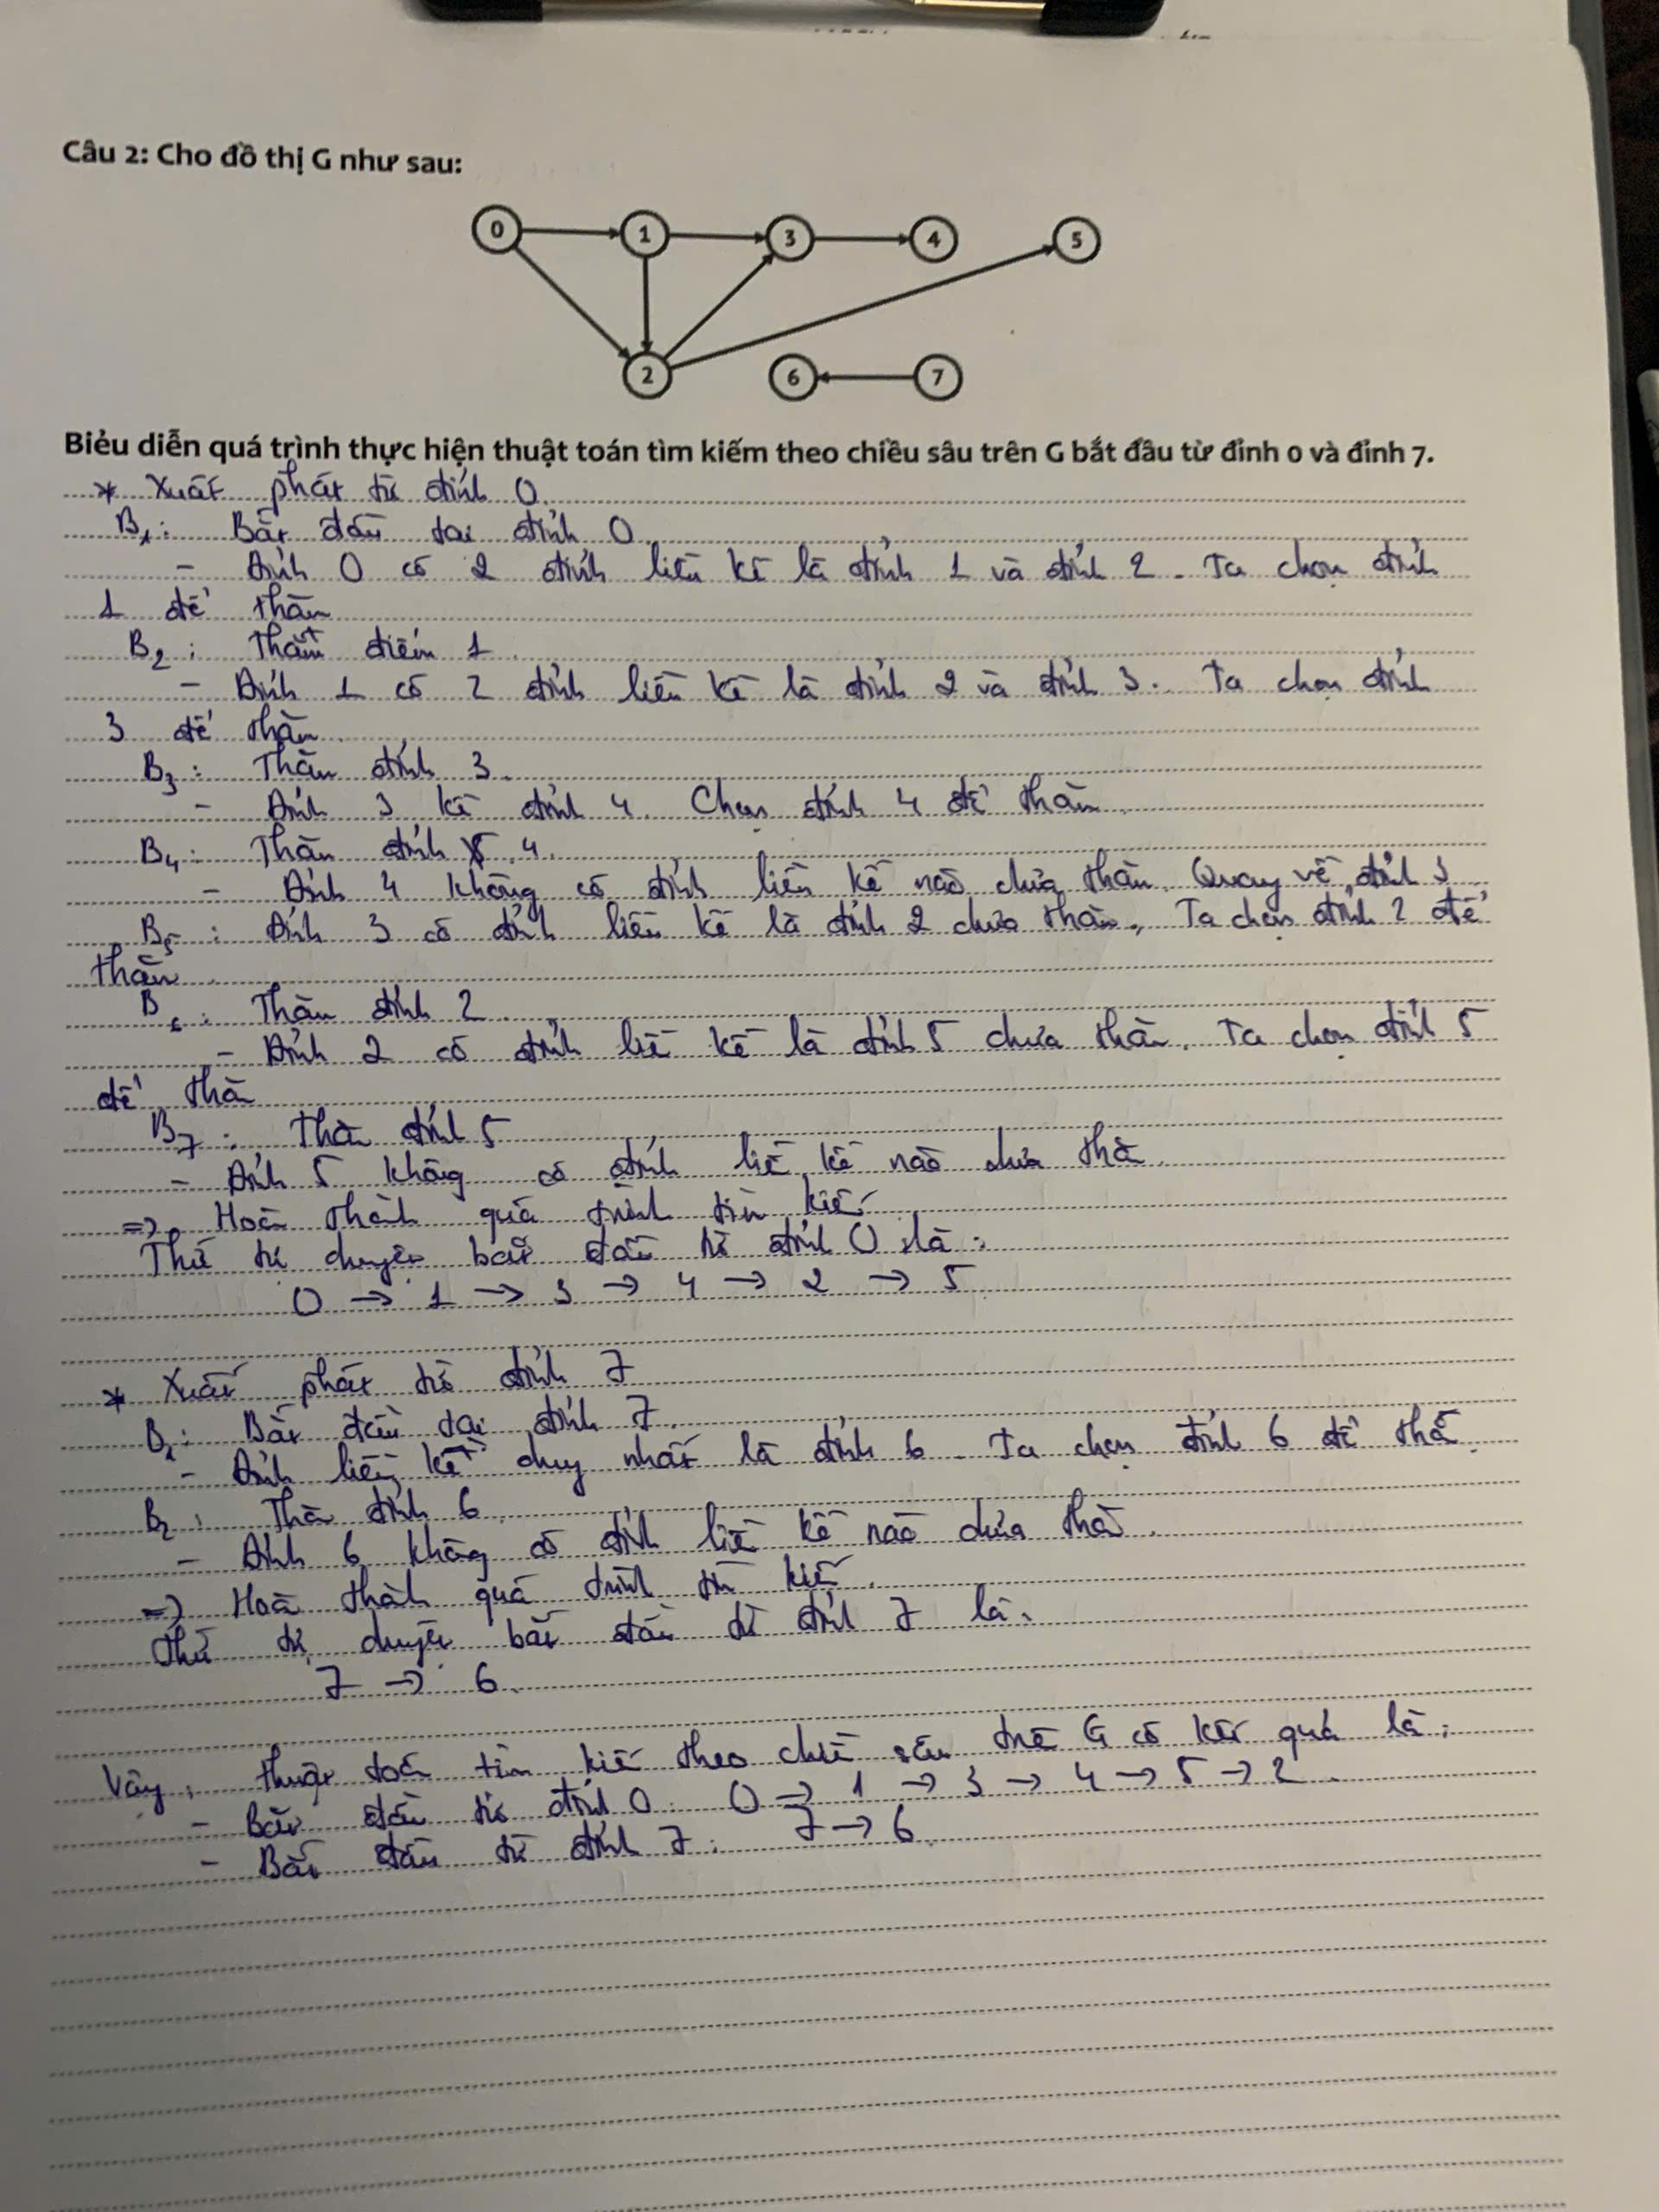 Câu 2: Cho đồ thị G như sau:
0 1 3 4 5
2 6 7
Biểu diễn quá trình thực hiện thuật toán tìm kiếm theo chiều sâu trên G bắt đầu từ đỉnh 0 và đỉnh 7.
* Xuất phát từ đỉnh 0.
B1: Bắt đầu tại đỉnh 0
- Đỉnh 0 có 2 đỉnh liền kề là đỉnh 1 và đỉnh 2. Ta chọn đỉnh
1 để thăm
B2: Thăm điểm 1.
- Đỉnh 1 có 2 đỉnh liền kề là đỉnh 2 và đỉnh 3. Ta chọn đỉnh
3 để thăm.
B3: Thăm đỉnh 3.
- Đỉnh 3 kề đỉnh 4. Chọn đỉnh 4 để thăm.
B4: Thăm đỉnh 4.
- Đỉnh 4 không có đỉnh liền kề nào chưa thăm. Quay về đỉnh 3
B5: Đỉnh 3 có đỉnh liền kề là đỉnh 2 chưa thăm. Ta chọn đỉnh 2 để
thăm.
B6: Thăm đỉnh 2.
- Đỉnh 2 có đỉnh liền kề là đỉnh 5 chưa thăm. Ta chọn đỉnh 5
để thăm
B7: Thăm đỉnh 5
- Đỉnh 5 không có đỉnh liền kề nào chưa thăm.
=> Hoàn thành quá trình tìm kiếm
Thứ tự duyệt bắt đầu từ đỉnh 0 là:
0 → 1 → 3 → 4 → 2 → 5
* Xuất phát từ đỉnh 7
B1: Bắt đầu tại đỉnh 7.
- Đỉnh liền kề duy nhất là đỉnh 6. Ta chọn đỉnh 6 để thăm.
B2: Thăm đỉnh 6.
- Đỉnh 6 không có đỉnh liền kề nào chưa thăm.
=> Hoàn thành quá trình tìm kiếm.
Thứ tự duyệt bắt đầu từ đỉnh 7 là:
7 → 6.
Vậy: thuật toán tìm kiếm theo chiều sâu trên G có kết quả là:
- Bắt đầu từ đỉnh 0: 0 → 1 → 3 → 4 → 5 → 2.
- Bắt đầu từ đỉnh 7: 7 → 6.